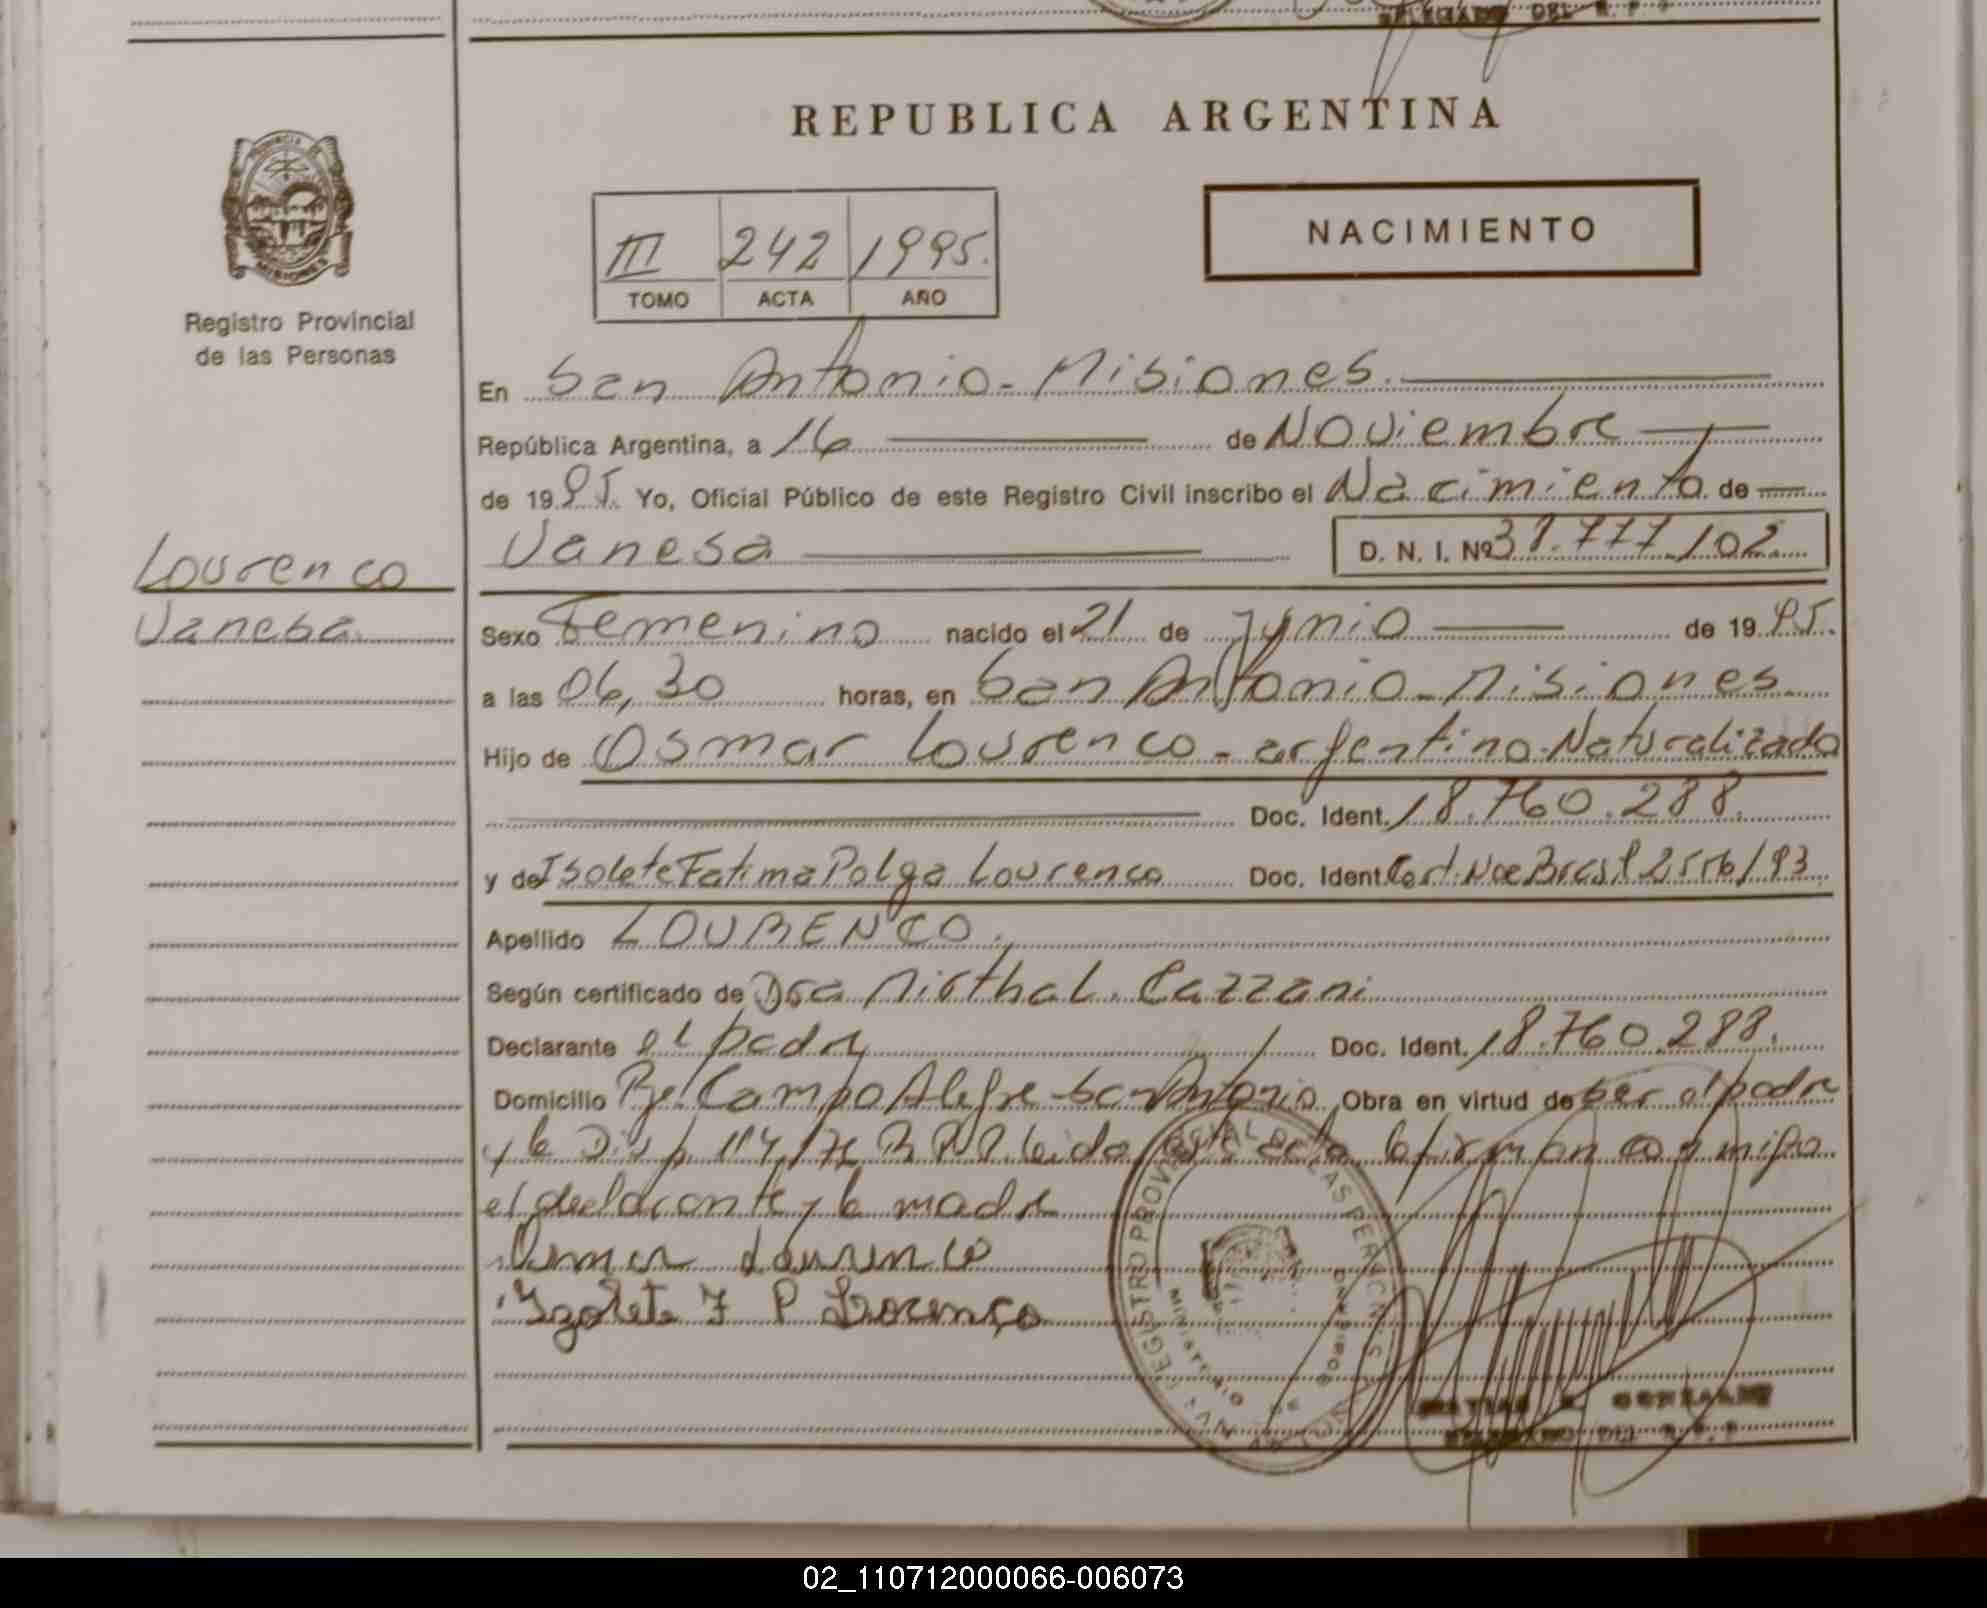 DEL R. P. P.
REPUBLICA ARGENTINA
PROVINCIA DE
MISIONES
Registro Provincial
de las Personas
NACIMIENTO
III 242 1995.
TOMO ACTA AÑO
En San Antonio - Misiones.
República Argentina, a 16 de Noviembre
de 1995. Yo, Oficial Público de este Registro Civil inscribo el Nacimiento de
Lourenco
Vanesa
Vanesa D. N. I. Nº 38.777.102
Sexo Femenino nacido el 21 de Junio de 1995.
a las 06,30 horas, en San Antonio - Misiones
Hijo de Osmar Lourenco - argentino Naturalizado
Doc. Ident. 18.760.288.
y de Isolete Fatima Polga Lourenco Doc. Ident. Cert. Nac Brasil 2556/93
Apellido LOURENCO.
Según certificado de Dra Mirtha L. Cazzani
Declarante el padre Doc. Ident. 18.760.288.
Domicilio Campo Alegre - San Antonio Obra en virtud de ser el padre
y la Disp. 114/76 R.P.P. Leida este acta la firman conmigo
el declarante y la madre
Osmar Lourenco
Izolete F P Lourenço
REGISTRO PROVINCIAL DE LAS PERSONAS
MINISTERIO DE GOBIERNO
GONZALEZ
DEL R. P. P.
02_110712000066-006073